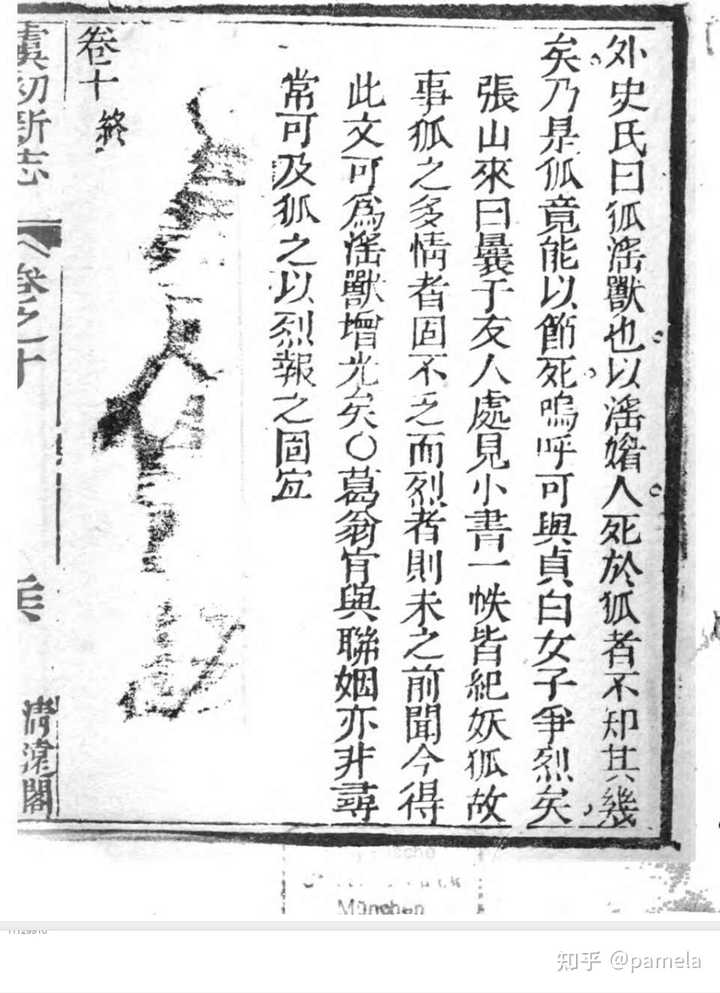 外史氏曰狐滛獸也以滛媚人死於狐者不知其幾
矣乃是狐竟能以節死嗚呼可與貞白女子爭烈矣
張山來曰曩于友人處見小書一帙皆紀妖狐故
事狐之多情者固不乏而烈者則未之前聞今得
此文可爲滛獸增光矣〇葛翁肯與聯姻亦非尋
常可及狐之以烈報之固宜
卷十 終
虞初新志 卷之十
清遠閣
München
知乎 @pamela